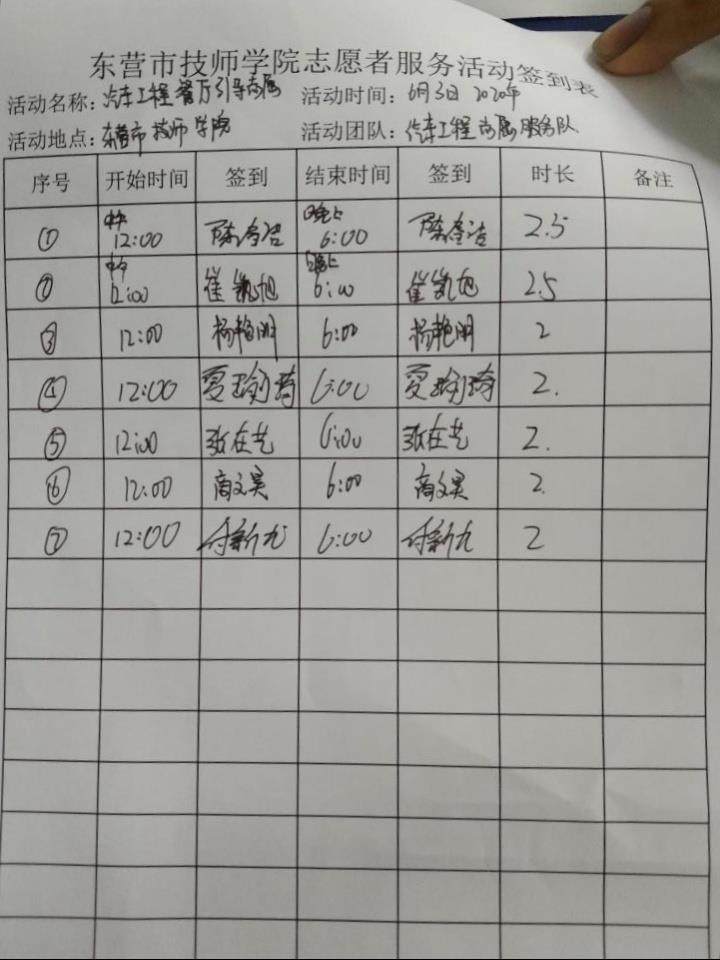 东营市技师学院志愿者服务活动签到表
活动名称：汽车工程餐厅引导志愿 活动时间：6月3日 2020年
活动地点：东营市技师学院 活动团队：汽车工程志愿服务队
序号 开始时间 签到 结束时间 签到 时长 备注
① 中午 12:00 晚上 6:00 2.5
② 中午 12:00 崔凯旭 晚上 6:00 崔凯旭 2.5
③ 12:00 杨艳明 6:00 杨艳明 2
④ 12:00 6:00 2.
⑤ 12:00 张在艺 6:00 张在艺 2.
⑥ 12:00 商文昊 6:00 商文昊 2.
⑦ 12:00 付新九 6:00 付新九 2